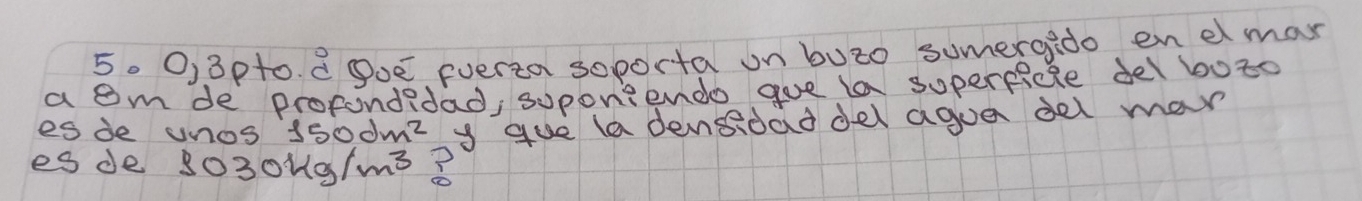 5. 0,3pto. ¿ Qué fuerza soporta un buzo sumergido en el mar
a 8m de profundidad, suponiendo que la superficie del buzo
es de unos 150dm² y que la densidad del agua del mar
es de 1030Kg/m³?